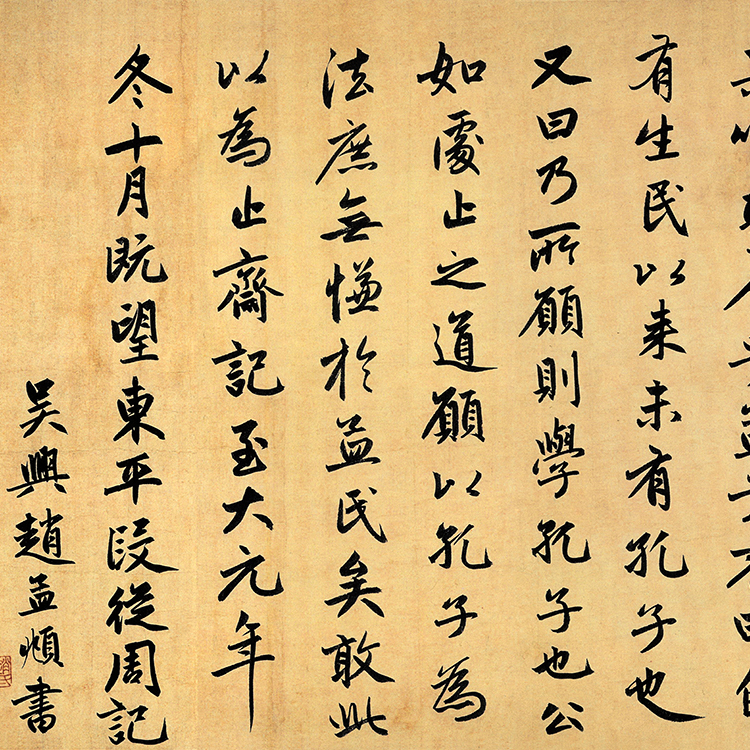 有生民以来未有孔子也
又曰乃所願則學孔子也公
如處止之道願以孔子為
法庶無慊於孟氏矣敢此
以為止齋記至大元年
冬十月既望東平段從周記
吳興趙孟頫書